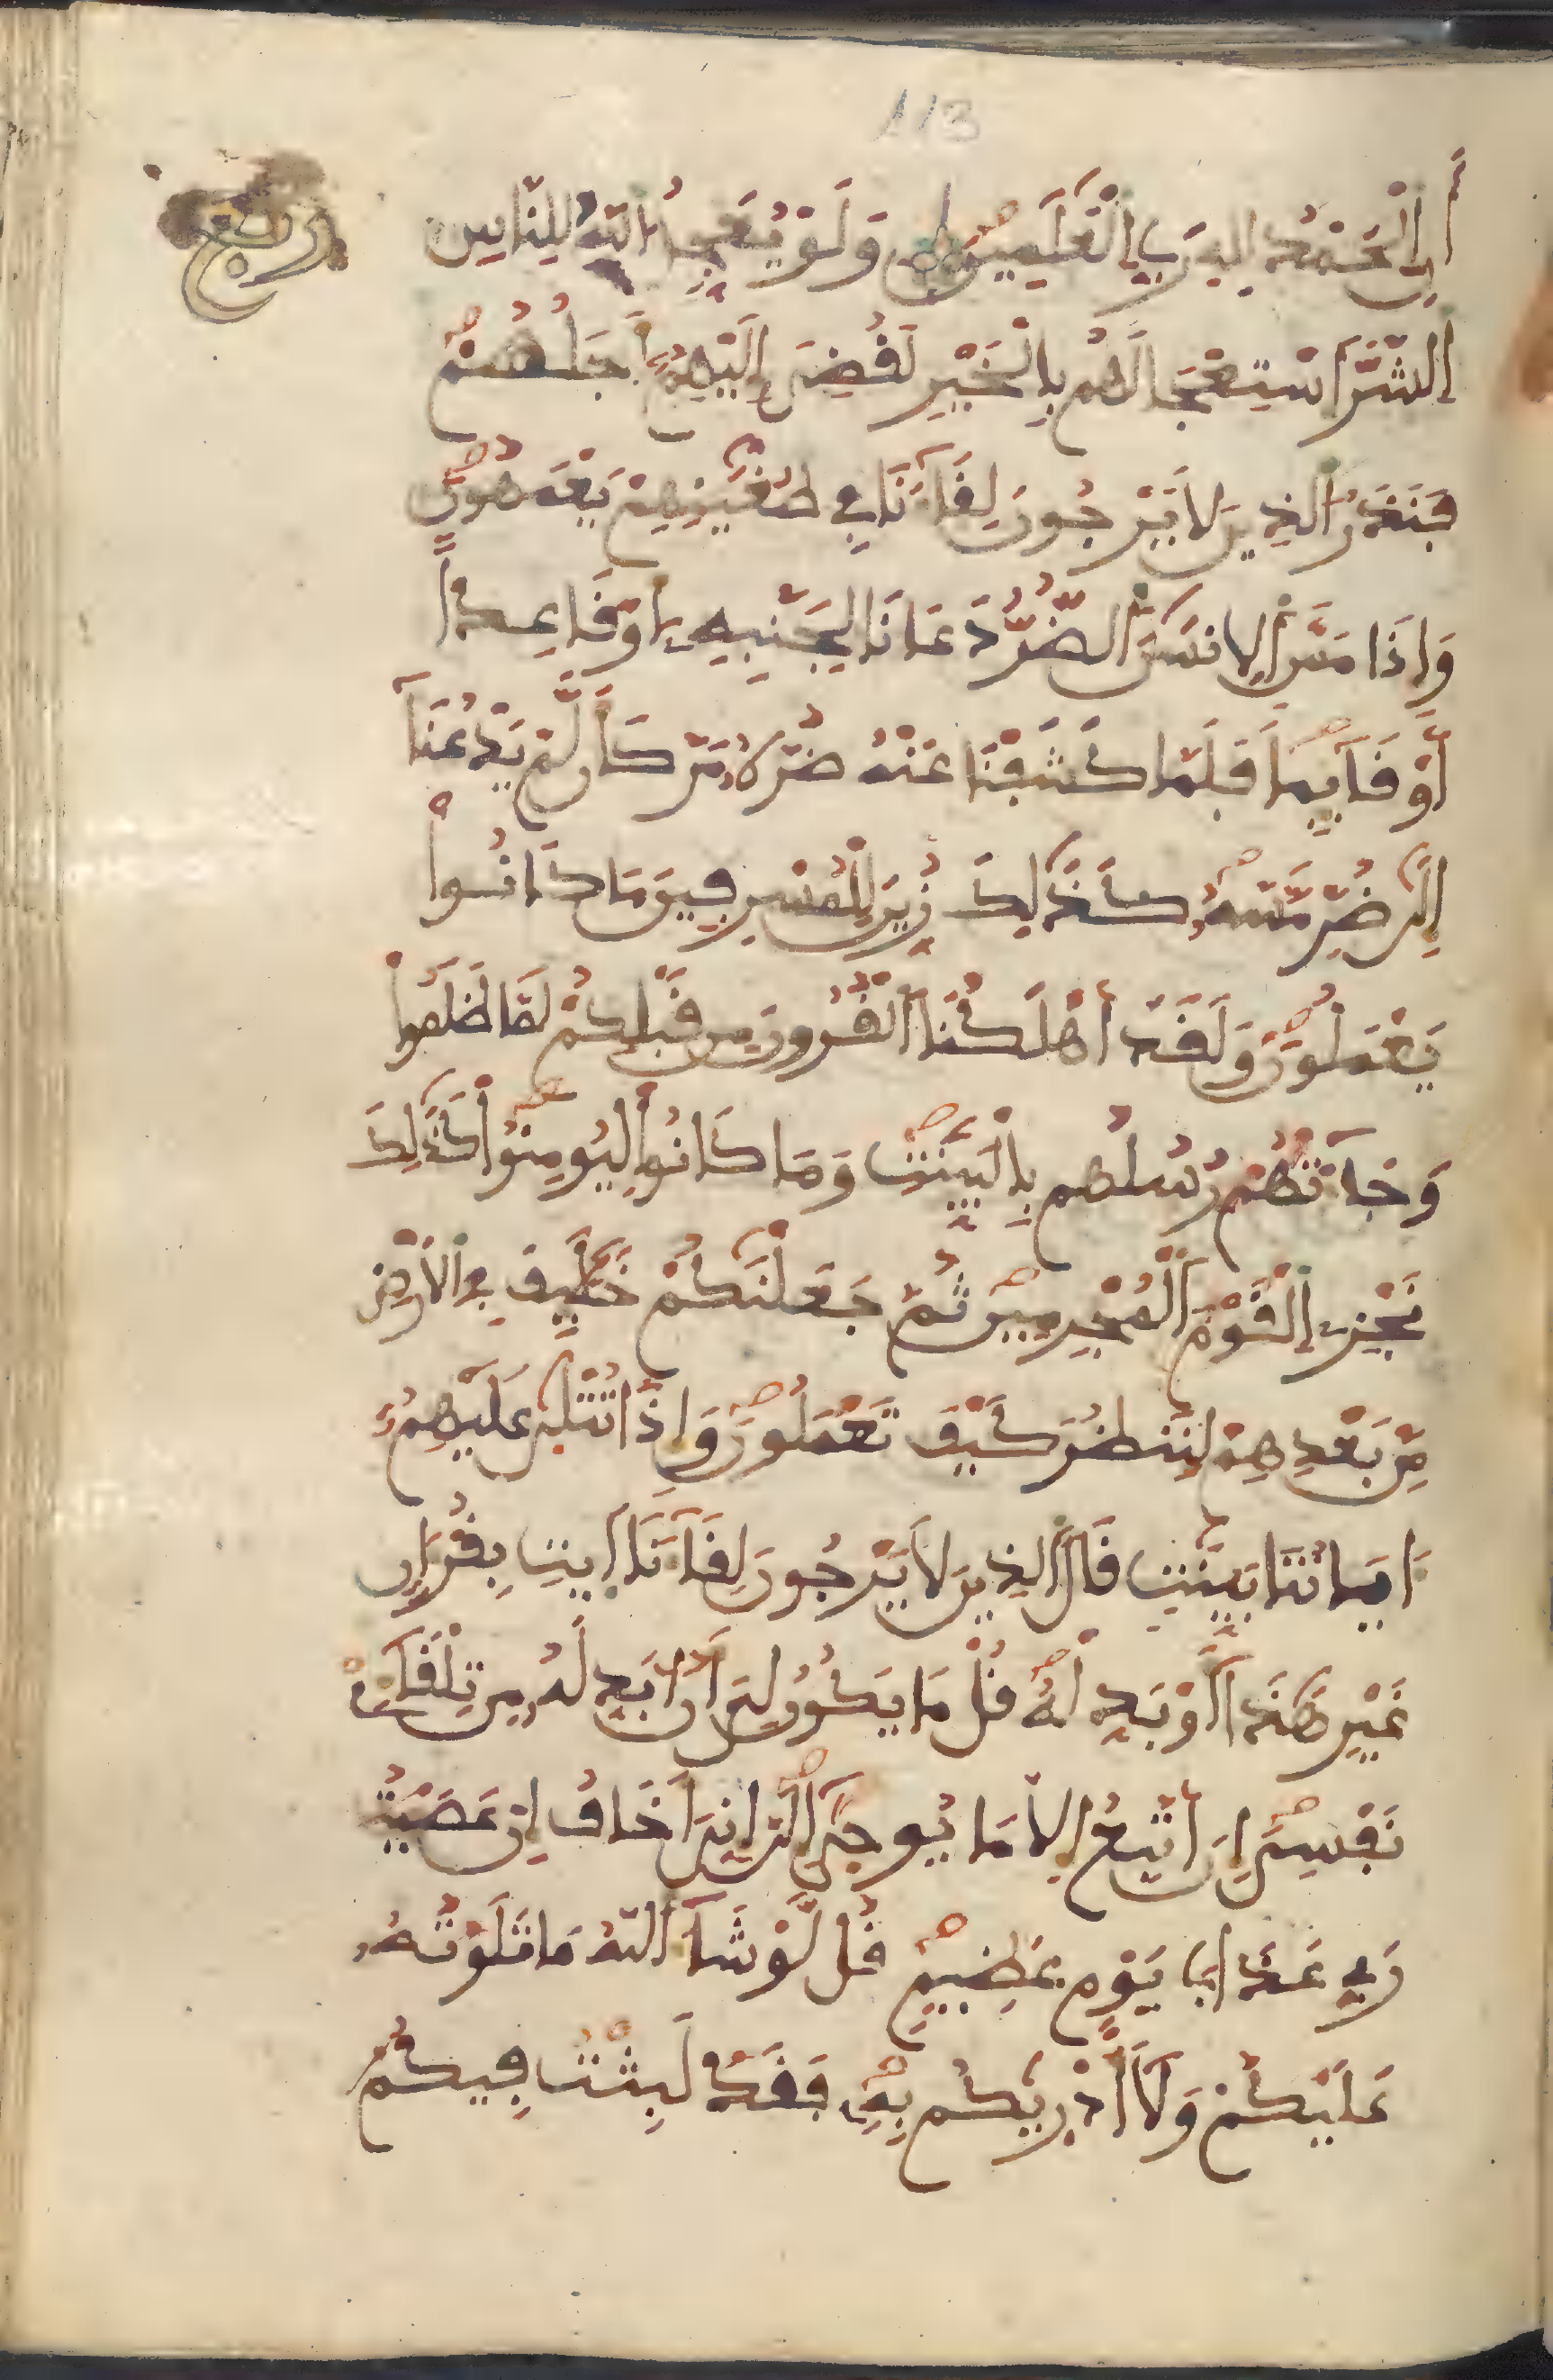 113
ربع
أَنِ اِلْحَمْدُ لِلهِ رَبِّ اِلْعَٰلَمِينَ وَلَوْ يُعَجِّلُ اُللَّهُ لِلنَّاسِ
اِلشَّرَّ اَسْتِعْجَالَهُم بِالْخَيْرِ لَقُضِيَ إِلَيْهِمُۥ أَجَلُهُمْ
فَنَذَرُ اُلذِينَ لَا يَرْجُونَ لِقَآءَنَا فِي طُغْيَٰنِهِمْ يَعْمَهُونَ
وَإِذَا مَسَّ اَلِانسَٰنَ اَلضُّرُّ دَعَانَا لِجَنۢبِهِۦ أَوْ قَاعِداً
أَوْ قَآئِماً فَلَمَّا كَشَفْنَا عَنْهُ ضُرَّهُۥ مَرَّ كَأَن لَّمْ يَدْعُنَآ
إِلَىٰ ضُرٍّ مَّسَّهُۥ كَذَٰلِكَ زُيِّنَ لِلْمُسْرِفِينَ مَا كَانُواْ
يَعْمَلُونَ وَلَقَدَ اَهْلَكْنَا اَلْقُرُونَ مِن قَبْلِكُمْ لَمَّا ظَلَمُواْ
وَجَآءَتْهُمْ رُسُلُهُم بِالْبَيِّنَٰتِ وَمَا كَانُواْ لِيُومِنُواْ كَذَٰلِكَ
نَجْزِي اِلْقَوْمَ اَلْمُجْرِمِينَ ثُمَّ جَعَلْنَٰكُمْ خَلَٰٓئِفَ فِي اِلَارْضِ
مِنۢ بَعْدِهِمْ لِنَنظُرَ كَيْفَ تَعْمَلُونَ وَإِذَا تُتْلَىٰ عَلَيْهِمُۥٓ
ءَايَاتُنَا بَيِّنَٰتٍ قَالَ اَلذِينَ لَا يَرْجُونَ لِقَآءَنَا اَيتِ بِقُرْءَانٍ
غَيْرِ هَٰذَآ أَوْ بَدِّلْهُ قُلْ مَا يَكُونُ لِيَ أَنُ ابَدِّلَهُۥ مِن تِلْقَآءِ
نَفْسِيَ إِنَ اَتَّبِعُ إِلَّا مَا يُوحَىٰٓ إِلَيَّ إِنِّيَ أَخَافُ إِنْ عَصَيْتُ
رَبِّي عَذَابَ يَوْمٍ عَظِيمٍ قُل لَّوْ شَآءَ اَللَّهُ مَا تَلَوْتُهُۥ
عَلَيْكُمْ وَلَآ أَدْرَيٰكُم بِهِۦ فَقَدْ لَبِثْتُ فِيكُمْ